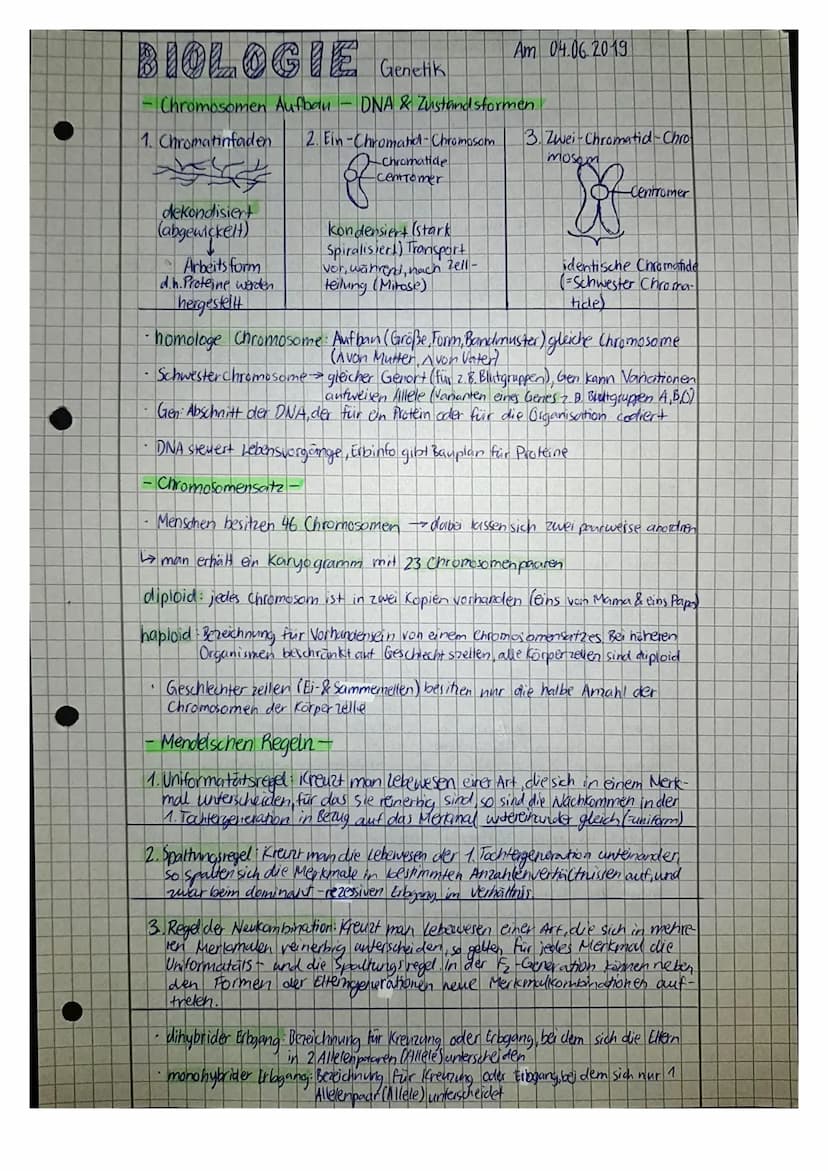 BIOLOGIE Genetik Am 04.06.2019
- Chromosomen Aufbau - DNA & Zustandsformen
1. Chromatinfaden
dekondisiert
(abgewickelt)
↓
Arbeitsform
d.h. Proteine werden
hergestellt
2. Ein-Chromatid-Chromosom
Chromatide
Centromer
kondensiert (stark
Spiralisiert) Transport
vor, während, nach Zell-
teilung (Mitose)
3. Zwei-Chromatid-Chro
mosom
Centromer
identische Chromatide
(=Schwester Chroma-
tide)
· homologe Chromosome: Aufbau (Größe, Form, Bandmuster) gleiche Chromosome
(1 von Mutter, 1 von Vater)
· Schwesterchromosome → gleicher Genort (für z.B. Blutgruppen), Gen kann Variationen
aufweisen Allele (Varianten eines Genes z.B. Blutgruppen A,B,0)
· Gen: Abschnitt der DNA, der für ein Protein oder für die Organisation codiert
· DNA steuert Lebensvorgänge, Erbinfo gibt Bauplan für Proteine
- Chromosomensatz -
· Menschen besitzen 46 Chromosomen → dabei lassen sich zwei paarweise anordnen
↳ man erhält ein Karyogramm mit 23 Chromosomenpaaren
diploid: jedes Chromosom ist in zwei Kopien vorhanden (eins von Mama & eins Papa)
haploid: Bezeichnung für Vorhandensein von einem Chromosomensatzes. Bei höheren
Organismen beschränkt auf Geschlechtszellen, alle Körperzellen sind diploid
· Geschlechterzellen (Ei- & Sammenzellen) besitzen nur die halbe Anzahl der
Chromosomen der Körperzelle
- Mendelschen Regeln -
1. Uniformatätsregel: Kreuzt man Lebewesen einer Art, die sich in einem Merk-
mal unterscheiden, für das sie reinerbig sind, so sind die Nachkommen in der
1. Tochtergeneration in Bezug auf das Merkmal untereinander gleich (=uniform)
2. Spaltungsregel: Kreuzt man die Lebewesen der 1. Tochtergeneration unteinander,
so spalten sich die Merkmale in bestimmten Anzahlenverhältnissen auf, und
zwar beim dominant-rezessiven Erbgang im Verhältnis.
3. Regel der Neukombination: Kreuzt man Lebewesen einer Art, die sich in mehre-
ren Merkmalen reinerbig unterscheiden, so gelten für jedes Merkmal die
Uniformatäts- und die Spaltungsregel. In der F2-Generation können neben
den Formen der Elterngenerationen neue Merkmalkombinationen auf-
treten.
· dihybrider Erbgang: Bezeichnung für Kreuzung oder Erbgang, bei dem sich die Eltern
in 2 Allelenpaaren (Allele) unterscheiden
· monohybrider Erbgang: Bezeichnung für Kreuzung oder Erbgang, bei dem sich nur 1
Allelenpaar (Allele) unterscheidet